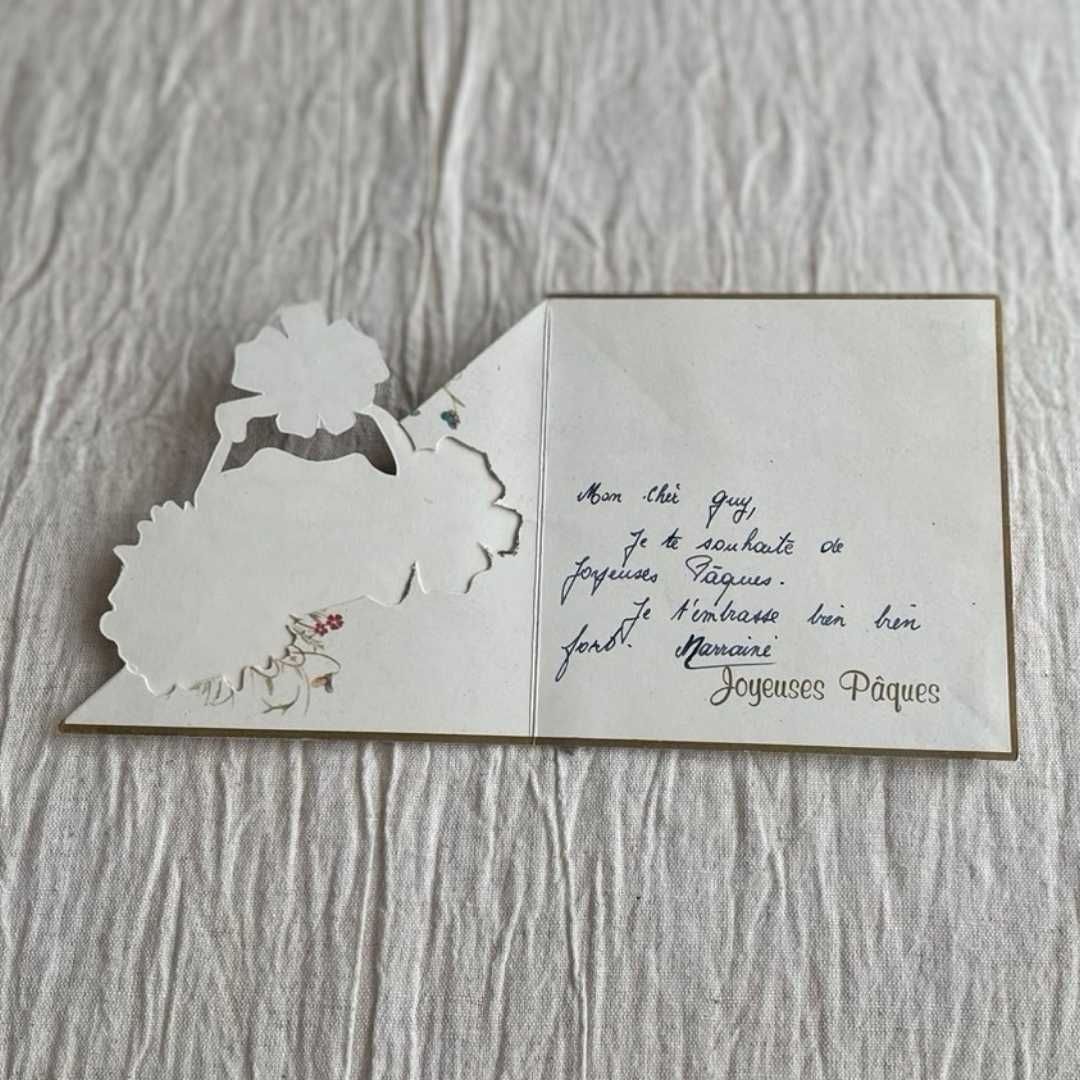 Mon cher Guy,
Je te souhaite de
Joyeuses Pâques.
Je t'embrasse bien bien
fort. Marraine
Joyeuses Pâques